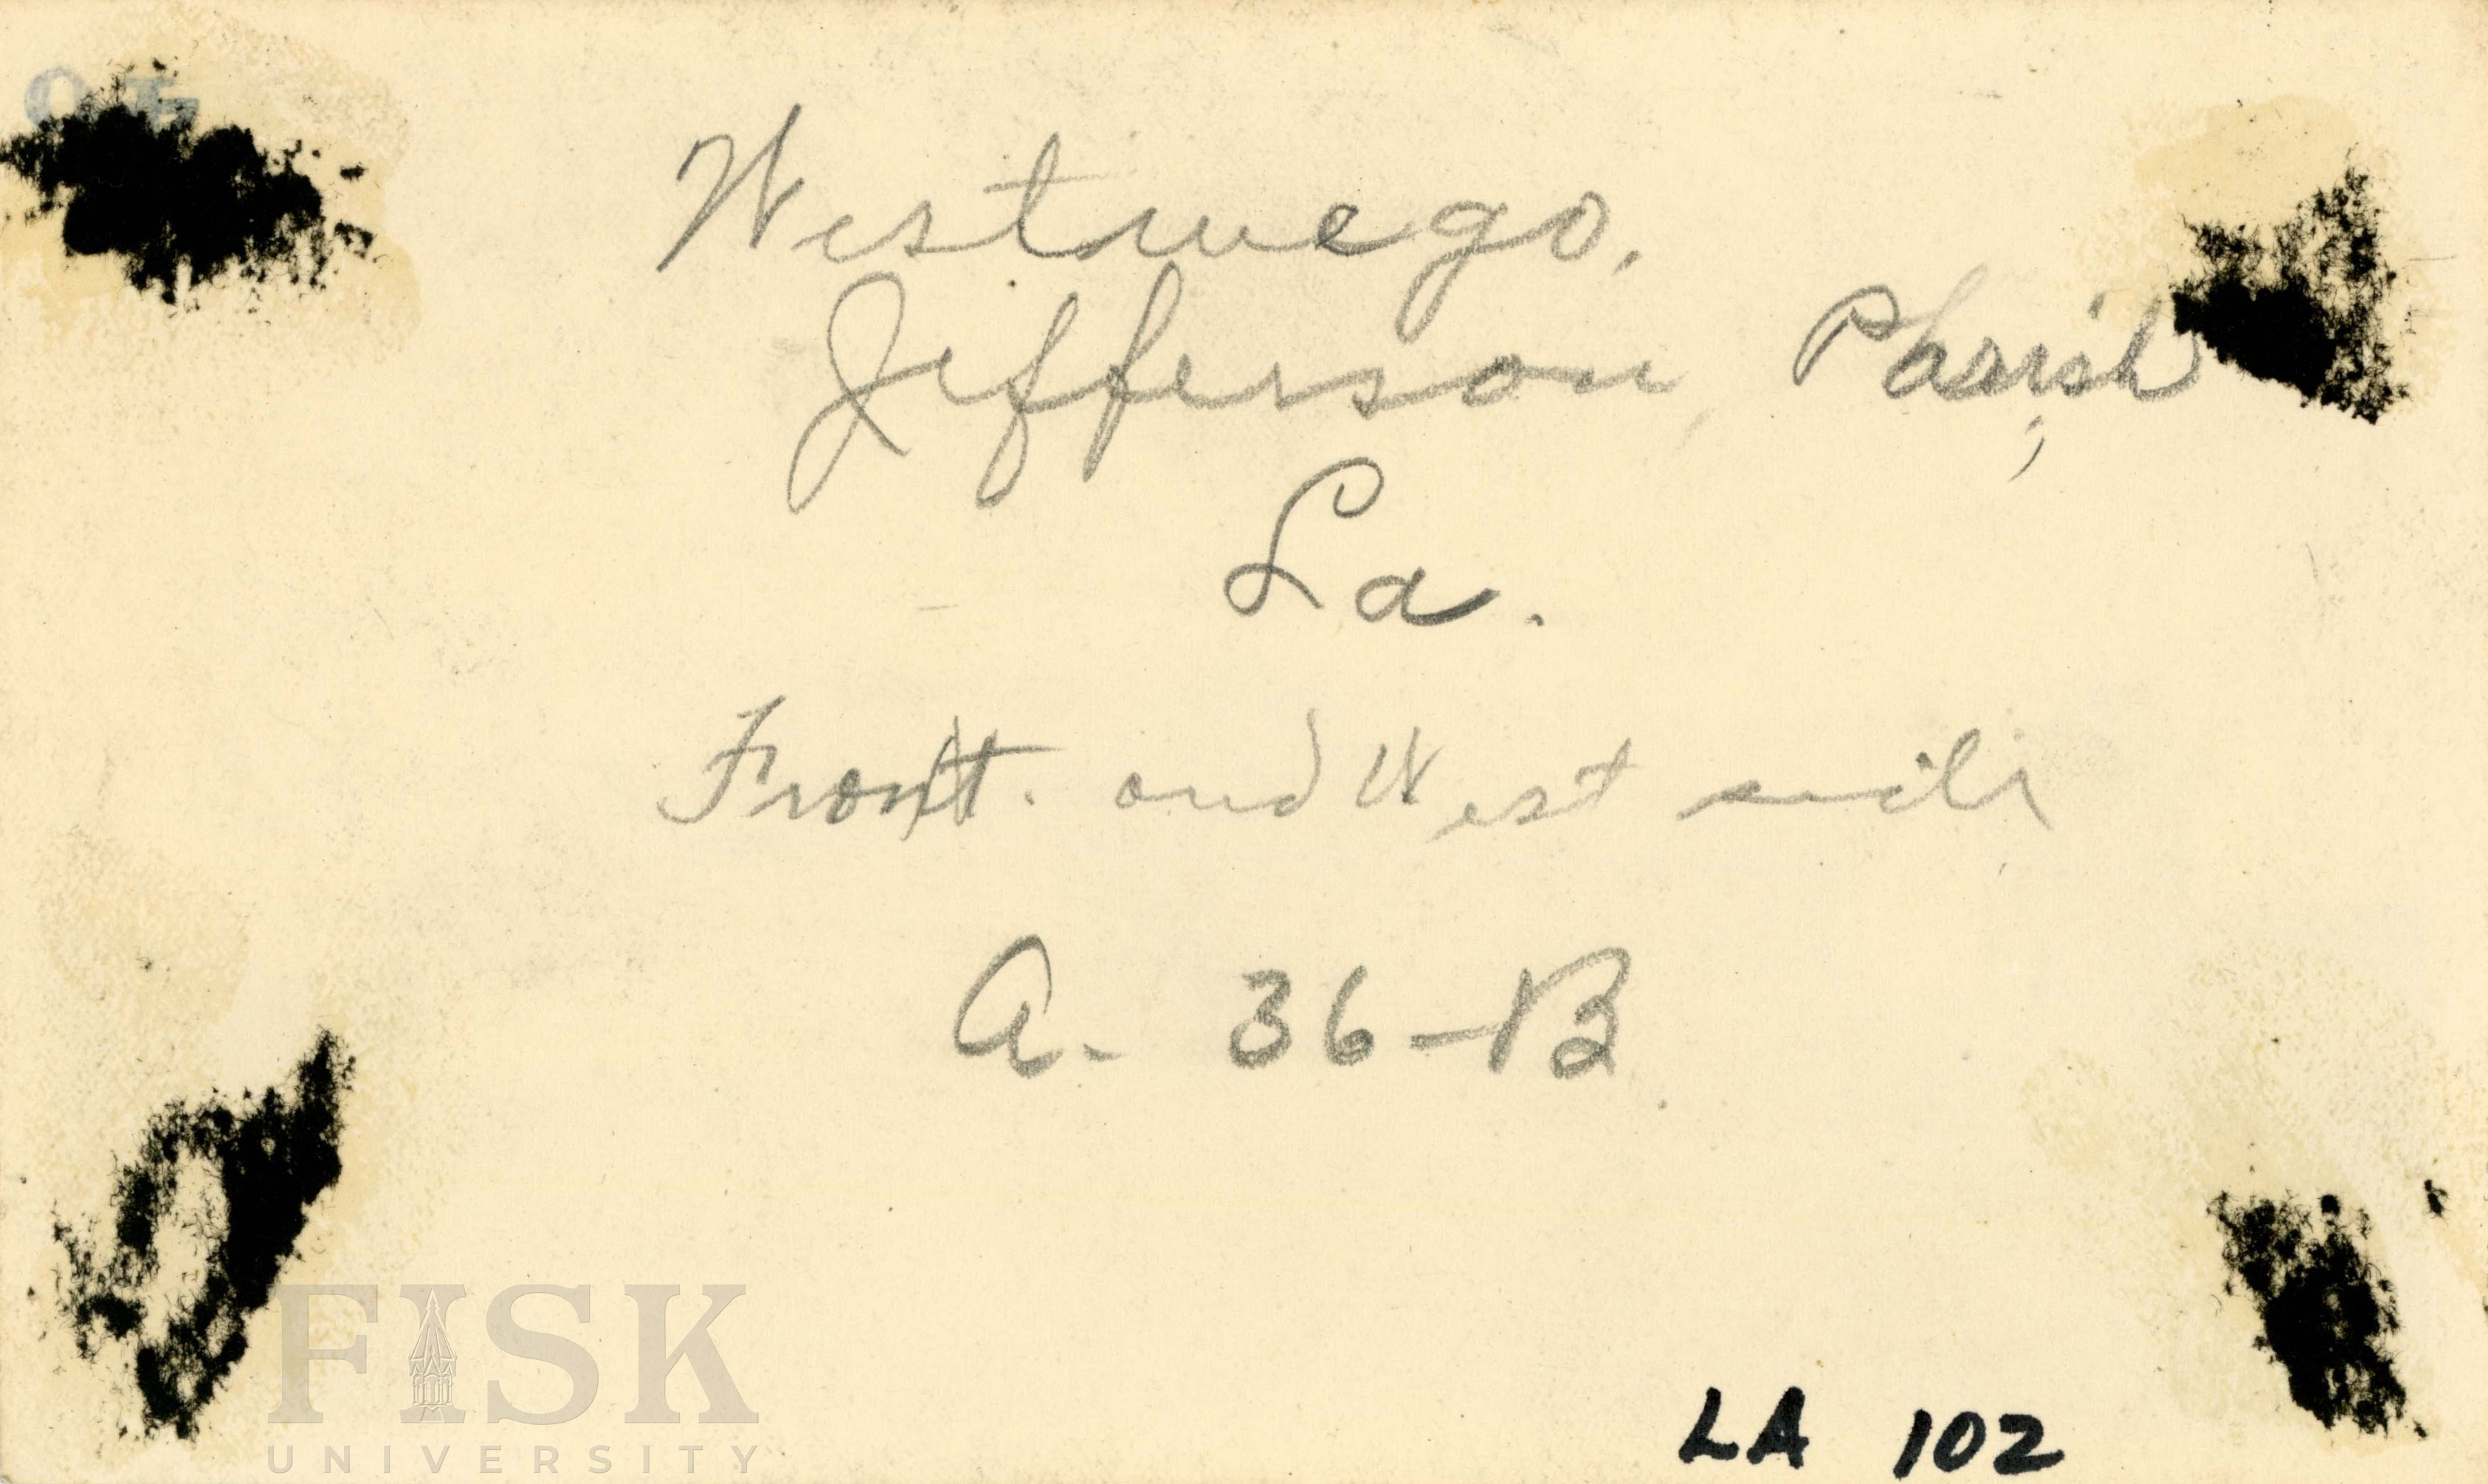 Westwego,
Jefferson, Parish,
La.
Front. and West side
A- 36-B
LA 102
FISK
UNIVERSITY